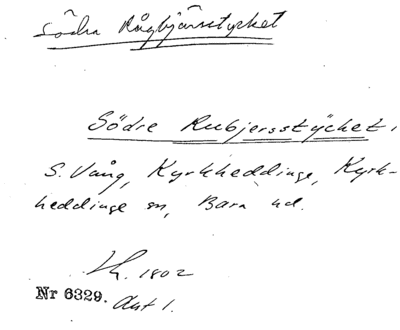 Södra Rågbjärsstycket
Södre Rubjersstÿcket,
S. Vång, Kyrkheddinge, Kyrk-
heddinge sn, Bara hd.
1802
Nr 6329. Akt 1.